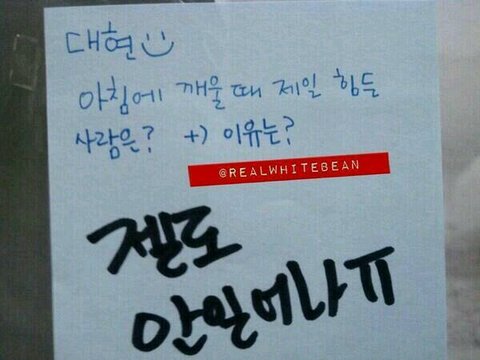 대현 :)
아침에 깨울때 제일 힘든
사람은? +) 이유는?
@REALWHITEBEAN
젤도
안일어나ㅠ